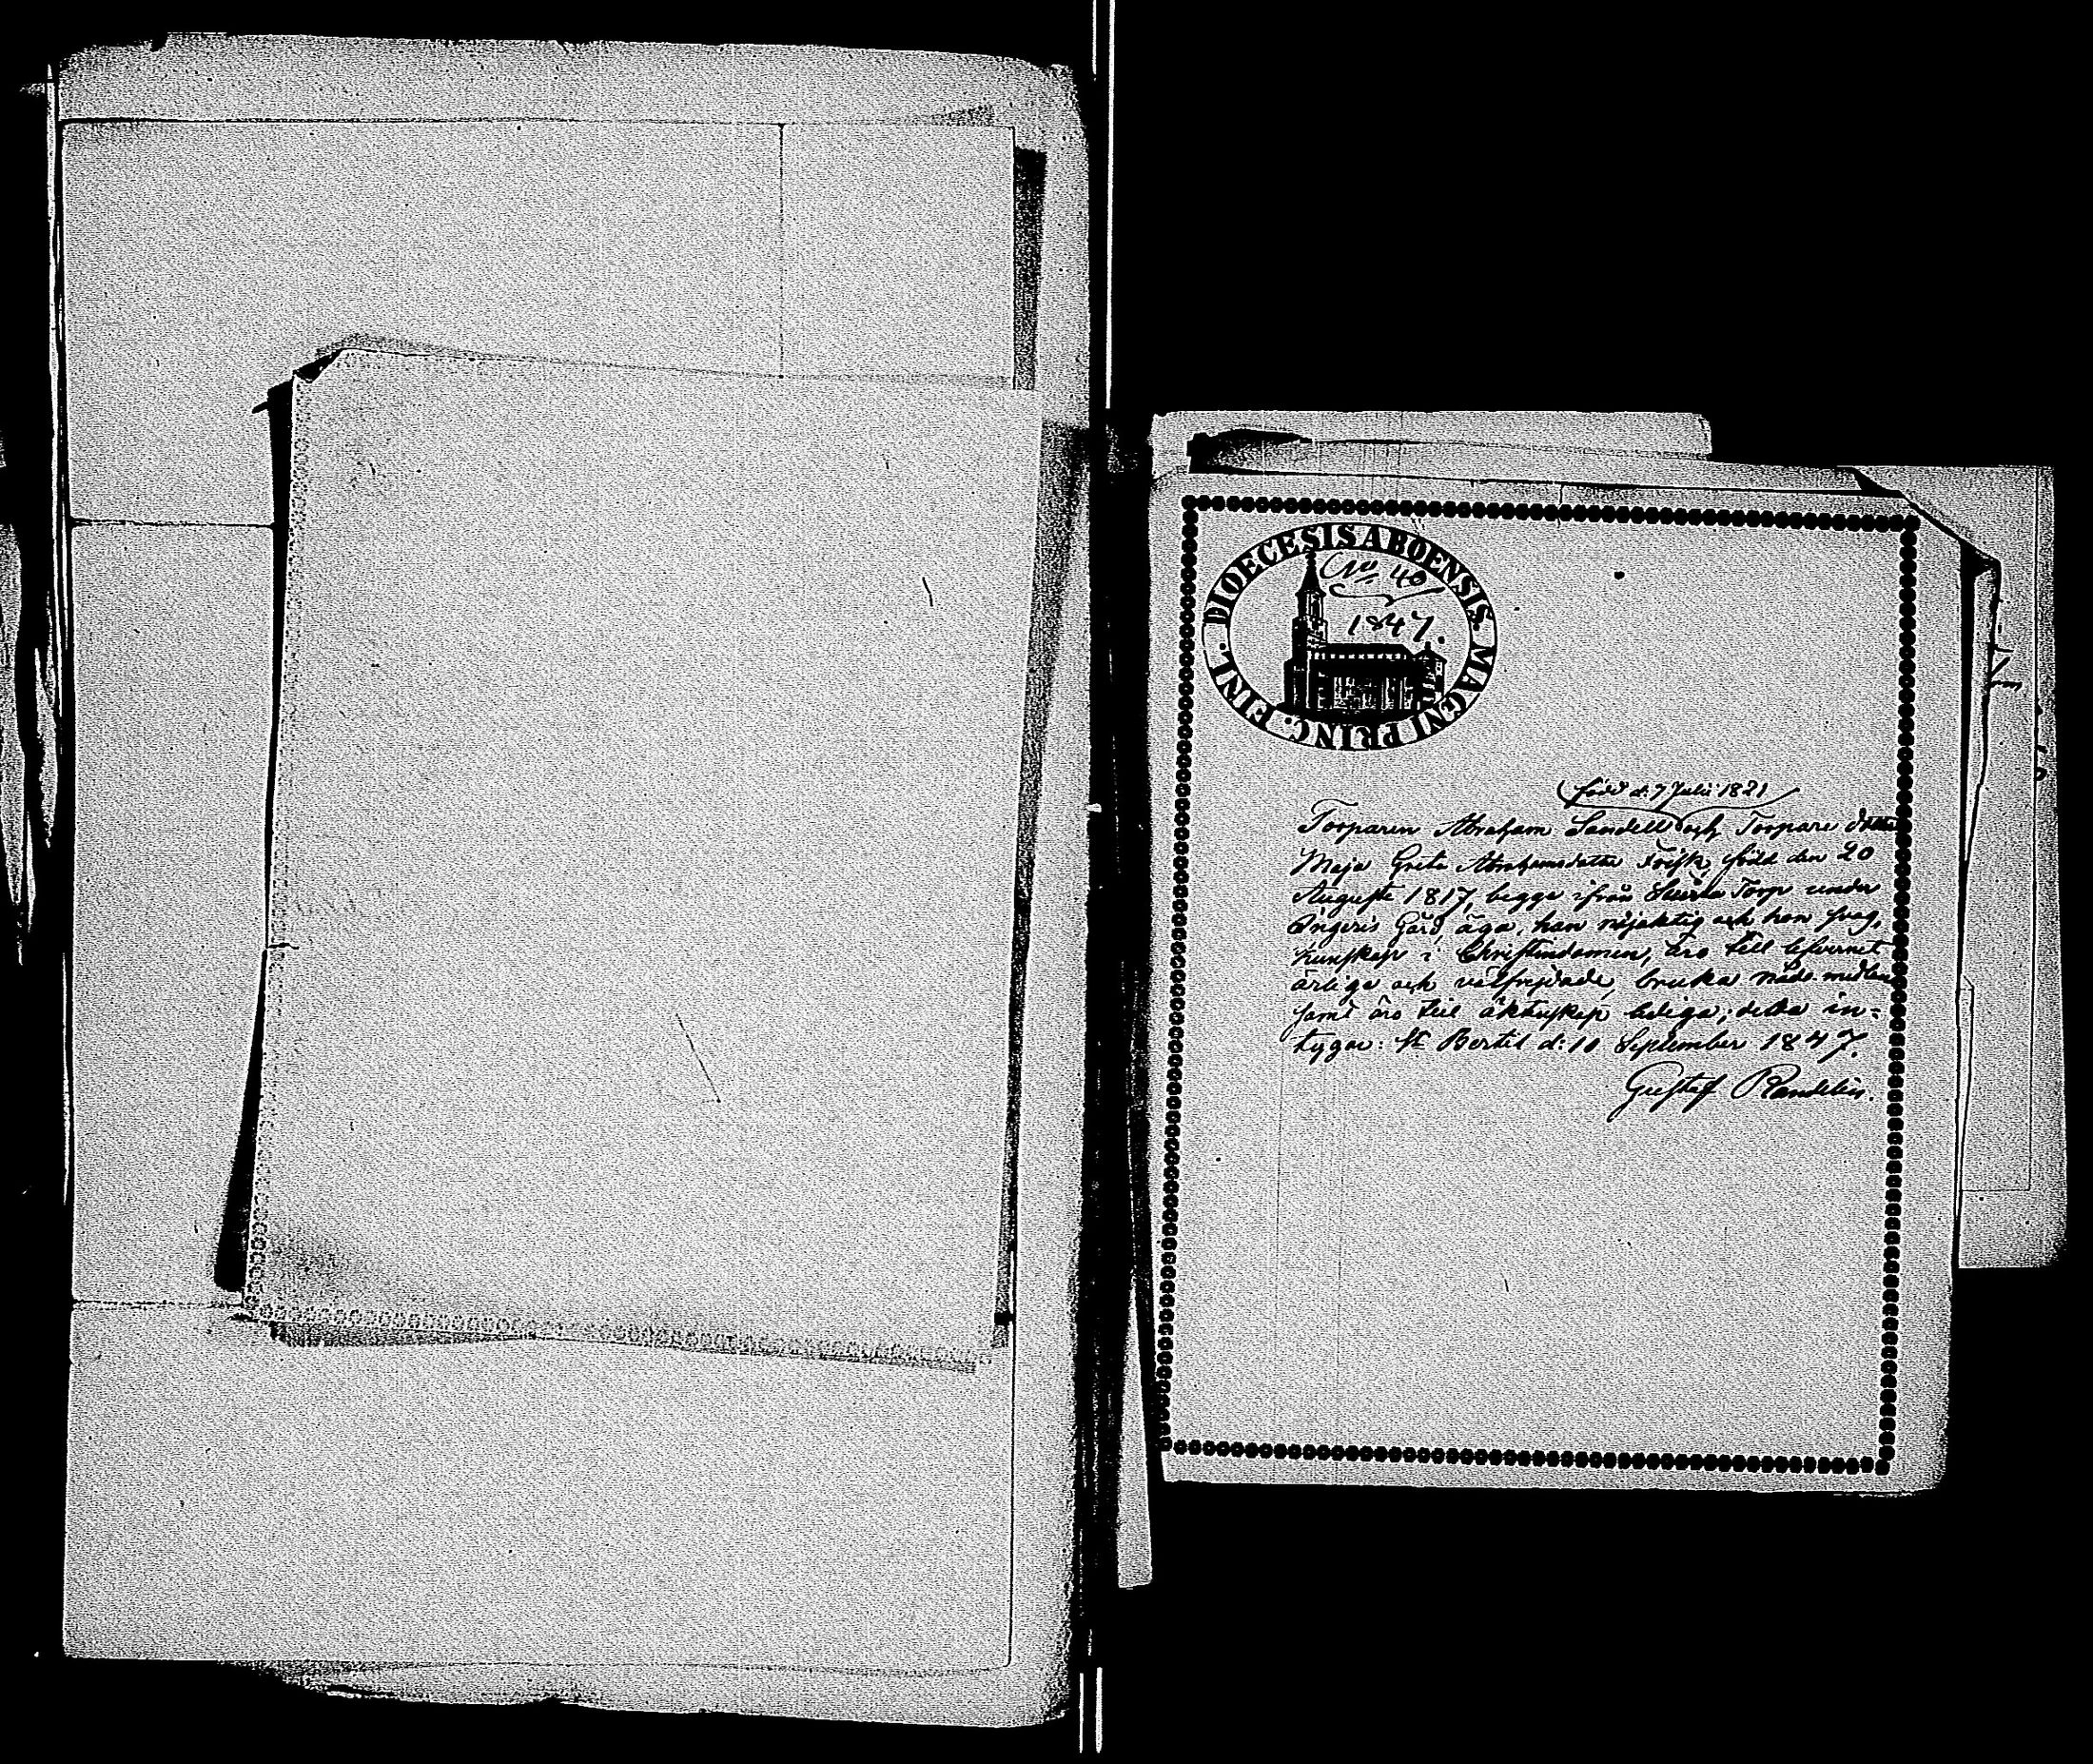 DIOECESIS ABOENSIS. MAGNI PRINC. FINL.
No. 40
1847.
född d. 7 Julii 1821
Torparen Abraham Sandell och Torpare dotter
Maja Greta Abrahamsdotter Frisk, född den 20
Augusti 1817, begge ifrån Torp under
Gård, äga, han nöjaktig och hon svag,
kunskap i Christendomen, äro till lefvernet
ärliga och välfrejdade, bruka nåde medlen
samt äro till äktenskap lediga; detta in-
tygar: St Bertil d: 10 September 1847.
Gustaf Randelin.